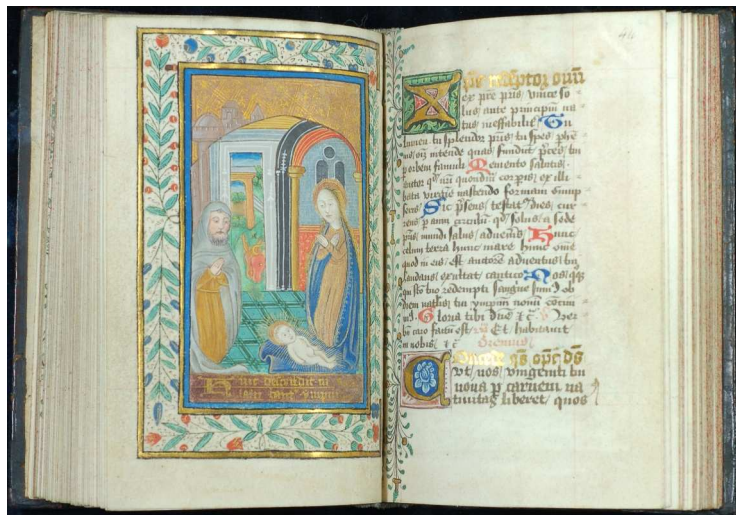 descendit
44
Xpē redēptor oīm
ex pre pris unice so
lus ante principiū na
tus ineffabilit Tu
lumen tu splendor pris tu spes phē
nis oīm intende quas fundūt preces tui
p orbem famuli Memento salutis
auctor qd nri quondā corporis ex illi
bata virgine nascendo formam sump
seris Sic psens testat dies cur
rens p anni circulū qd solus a sede
pris mundi salus adveneris Hunc
celum terra hunc mare hunc omē
quod in eis est auctorē adventus tui
laudans exultat cantico Nos quoq
qui sco tuo redempti sanguine sumꝰ ob
diem natalis tui ympnum novū concini
mꝰ Gloria tibi dne ⁊ c̄ Ver
bū caro factū est Et habitavit
in nobis ⁊ c̄ Oremus
Concede qs opē ds
ut nos unigeniti tui
nova p carnem na
tivitas liberet quos